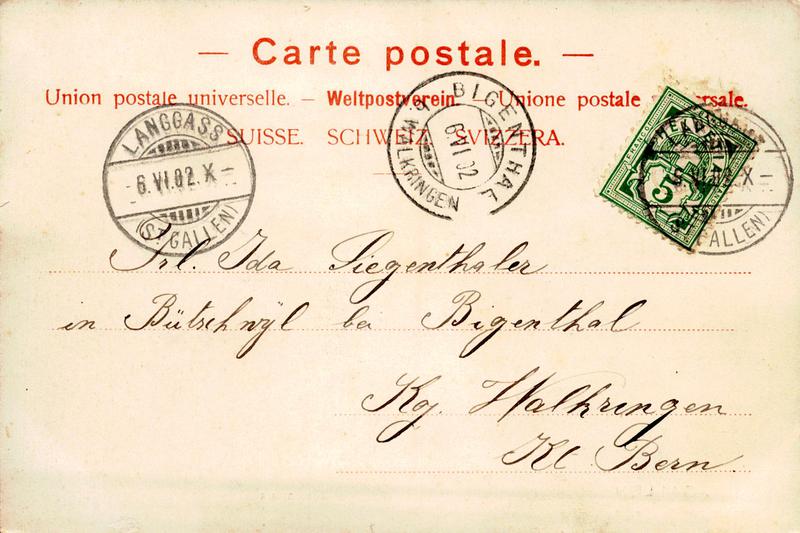 — Carte postale. —
Union postale universelle. — Weltpostverein. — Unione postale
SUISSE. SCHWEIZ. SVIZZERA.
LANGGASS
6.VI.02.X–
(ST. GALLEN)
BIGENTHAL
6 VI 02
WALKRINGEN
5
Frl. Ida Siegenthaler
in Bütschwyl bei Bigenthal
Kg. Walkringen
Kt Bern.